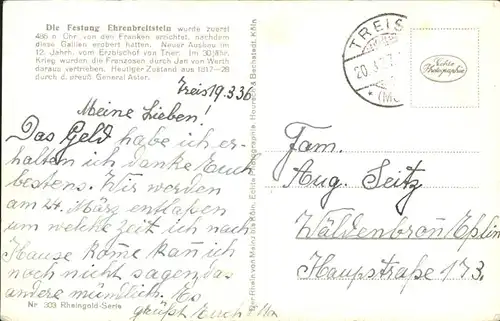 Die Festung Ehrenbreitstein wurde zuerst
486 n. Chr. von den Franken errichtet, nachdem
diese Gallien erobert hatten. Neuer Ausbau im
12. Jahrh. vom Erzbischof von Trier. Im 30jähr.
Krieg wurden die Franzosen durch Jan von Werth
daraus vertrieben. Heutiger Zustand aus 1817—28
durch d. preuß. General Aster.
Treis 19.3.36
Meine Lieben!
Das Geld habe ich er-
halten ich danke Euch
bestens. Wir werden
am 24. März entlaßen
um welche Zeit ich nach
Hause kome kan ich
noch nicht sagen das
andere mündlich. Es
grüßt Euch
Nr. 303 Rheingold-Serie
Der Rhein von Mainz bis Köln. Echte Photographie Hoursch & Bechstedt, Köln
TREIS
20.3.
Echte
Photographie
Fam.
Aug. Seitz
Wäldenbronn Eßlin
Hauptstraße 173.